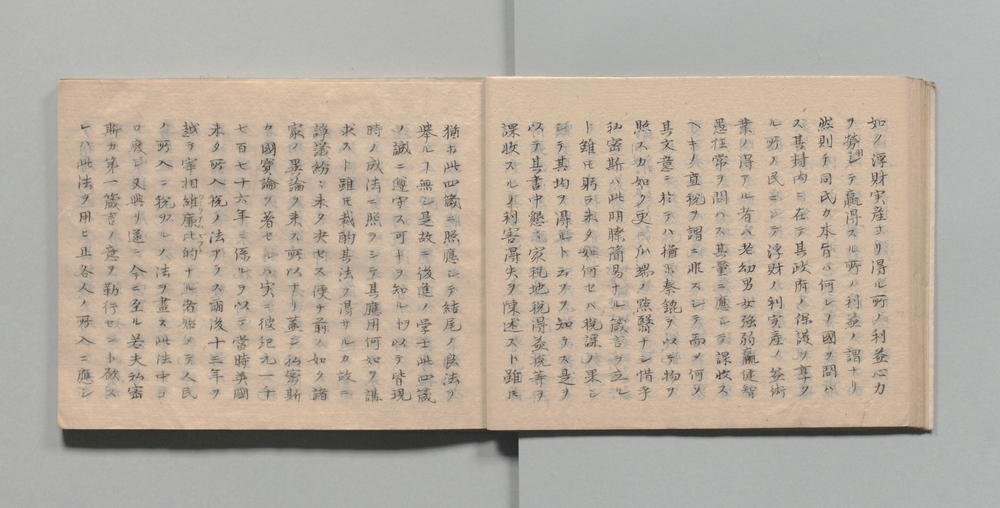 如ク浮財実産ヨリ得ル所ノ利益心力
ヲ労シテ贏得スル所ノ利益ノ謂ナリ
然則チ同氏カ本旨ハ何レノ國ヲ問ハ
ス其村内ニ在テ其政府ノ保護ヲ享ク
ル所ノ民ニシテ浮財ノ利実産ノ益術
業ノ得アル者ハ老幼男女強弱羸健智
愚任常ヲ問ハス其量ニ應シテ課收ス
ヘキノ直税ヲ謂ニ非スシテ而メ何ソ
其文意ニ於テハ猶ホ秦鏡ヲ以テ物ヲ
照スカ如ク更ニ瓜端ノ照翳ナシ惜乎
弘密斯ハ此明瞭簡易ナル箴言ヲ立ル
ト雖モ躬ロ未タ如何セハ税課ノ果シ
テ其均ヲ得ルト云フヲ知ラス是ヲ
以テ其書中態々家税地税得益税等ヲ
課收スルノ利害得失ヲ陳述スト雖𪜈
猶ホ此四箴ニ照應シテ結尾ノ良法ヲ
擧ルヿ無シ是故ニ後進ノ学士此四箴
ノ誠ニ遵守ス可キヲ知ル以テ皆現
時ノ成法ニ照ラシテ其應用何如ヲ講
求スト雖モ裁酌其法ヲ得サルカ故ニ
諍議紛々未タ決セス便チ前ノ如ク諸
家ノ異論ヲ来ス所以ナリ蓋シ弘密斯
ク國寶論ヲ著セルハ実ニ彼紀元一千
七百七十六年ニ係ルヲ以テ當時英國
未タ所入税ノ法アラス爾後十三年ヲ
越テ宰相維廉比的ナル者始メテ人民
ノ所入ニ税スルノ法ヲ畫ス此法中コ
ロ廢シ又興リ遂ニ今ニ至ル若夫弘密
斯カ第一箴言ノ意ヲ勒行セント欲ス
レハ此法ヲ用ヒ正各人ノ所入ニ應シ